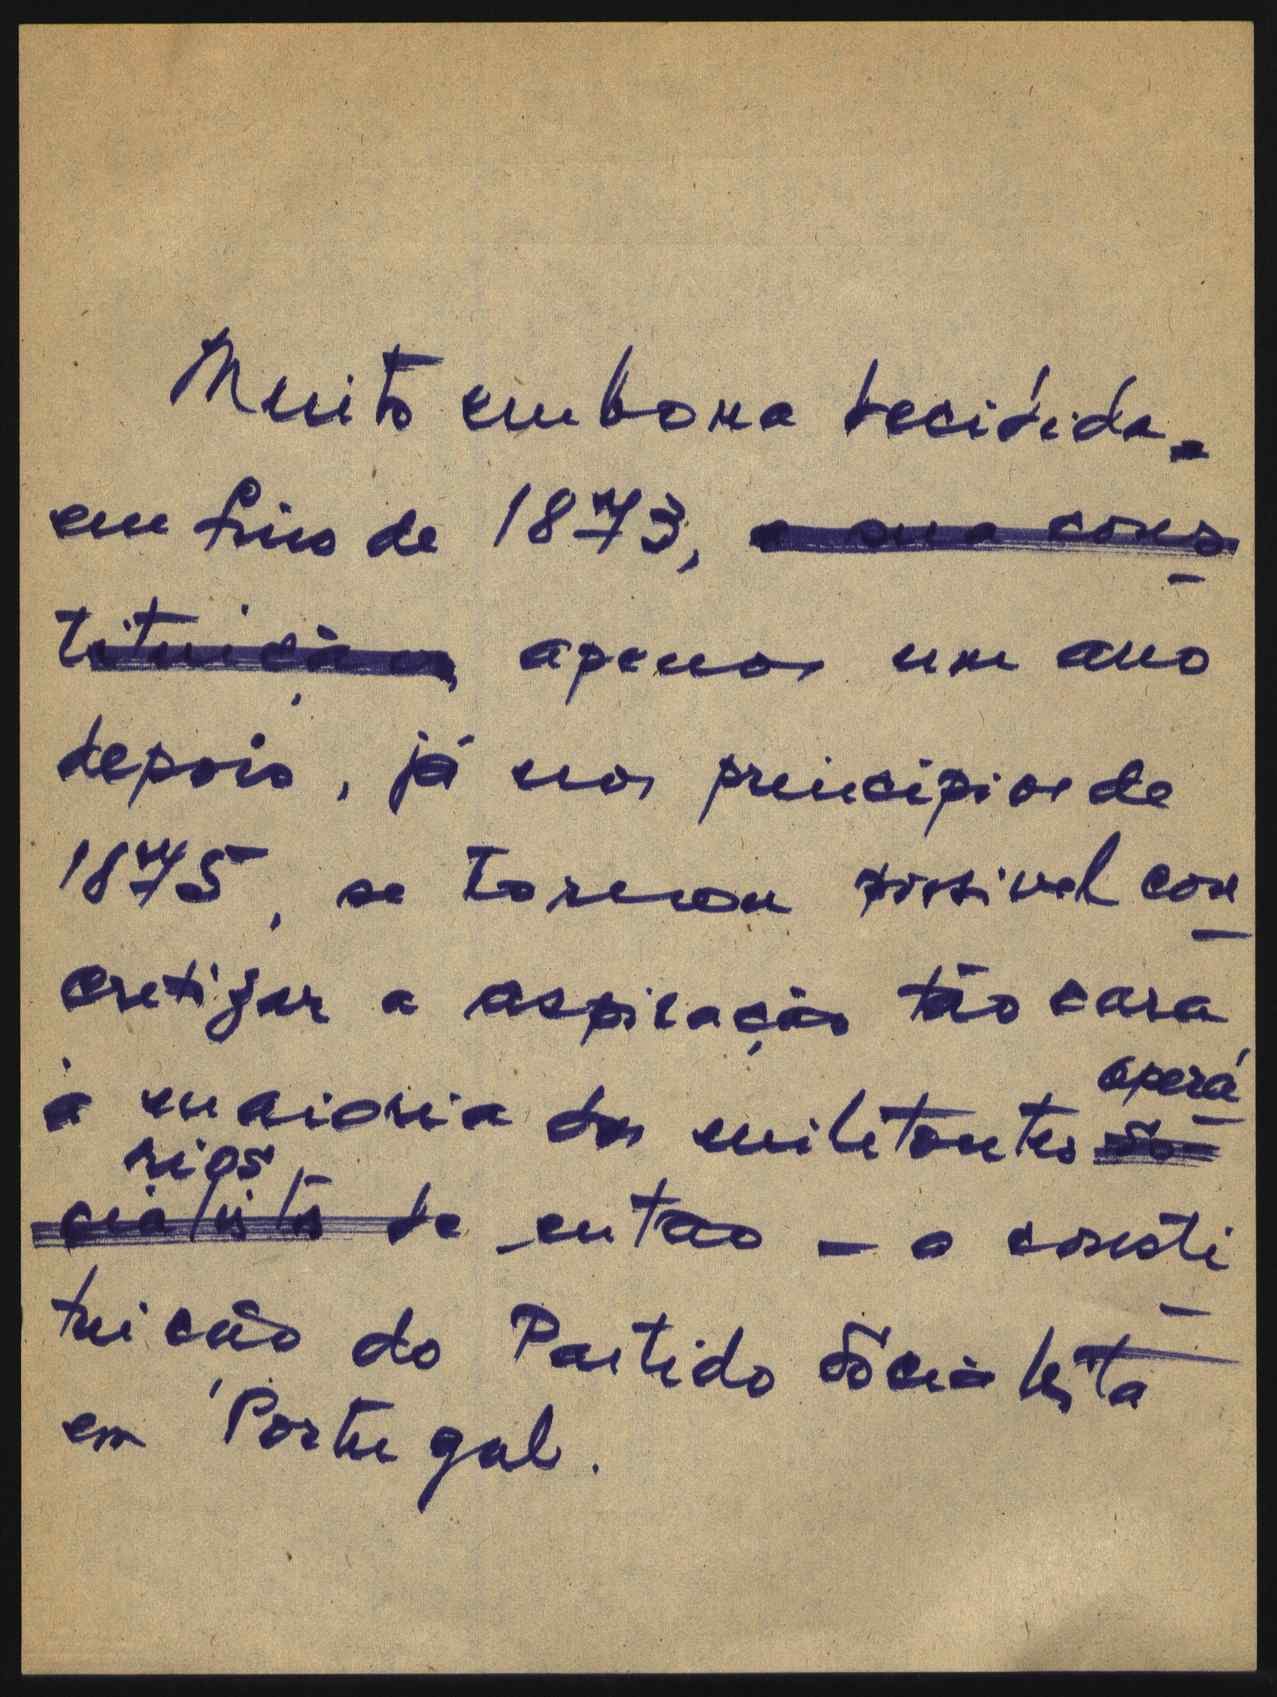 Muito embora decidida
em fins de 1873, a sua cons-
tituição, apenas um ano
depois, já nos princípios de
1875, se tornou possivel con-
cretizar a aspiração tão cara
operá-
à maioria dos militantes so
rios
cialista de então – a consti-
tuição do Partido Socialista
em Portugal.